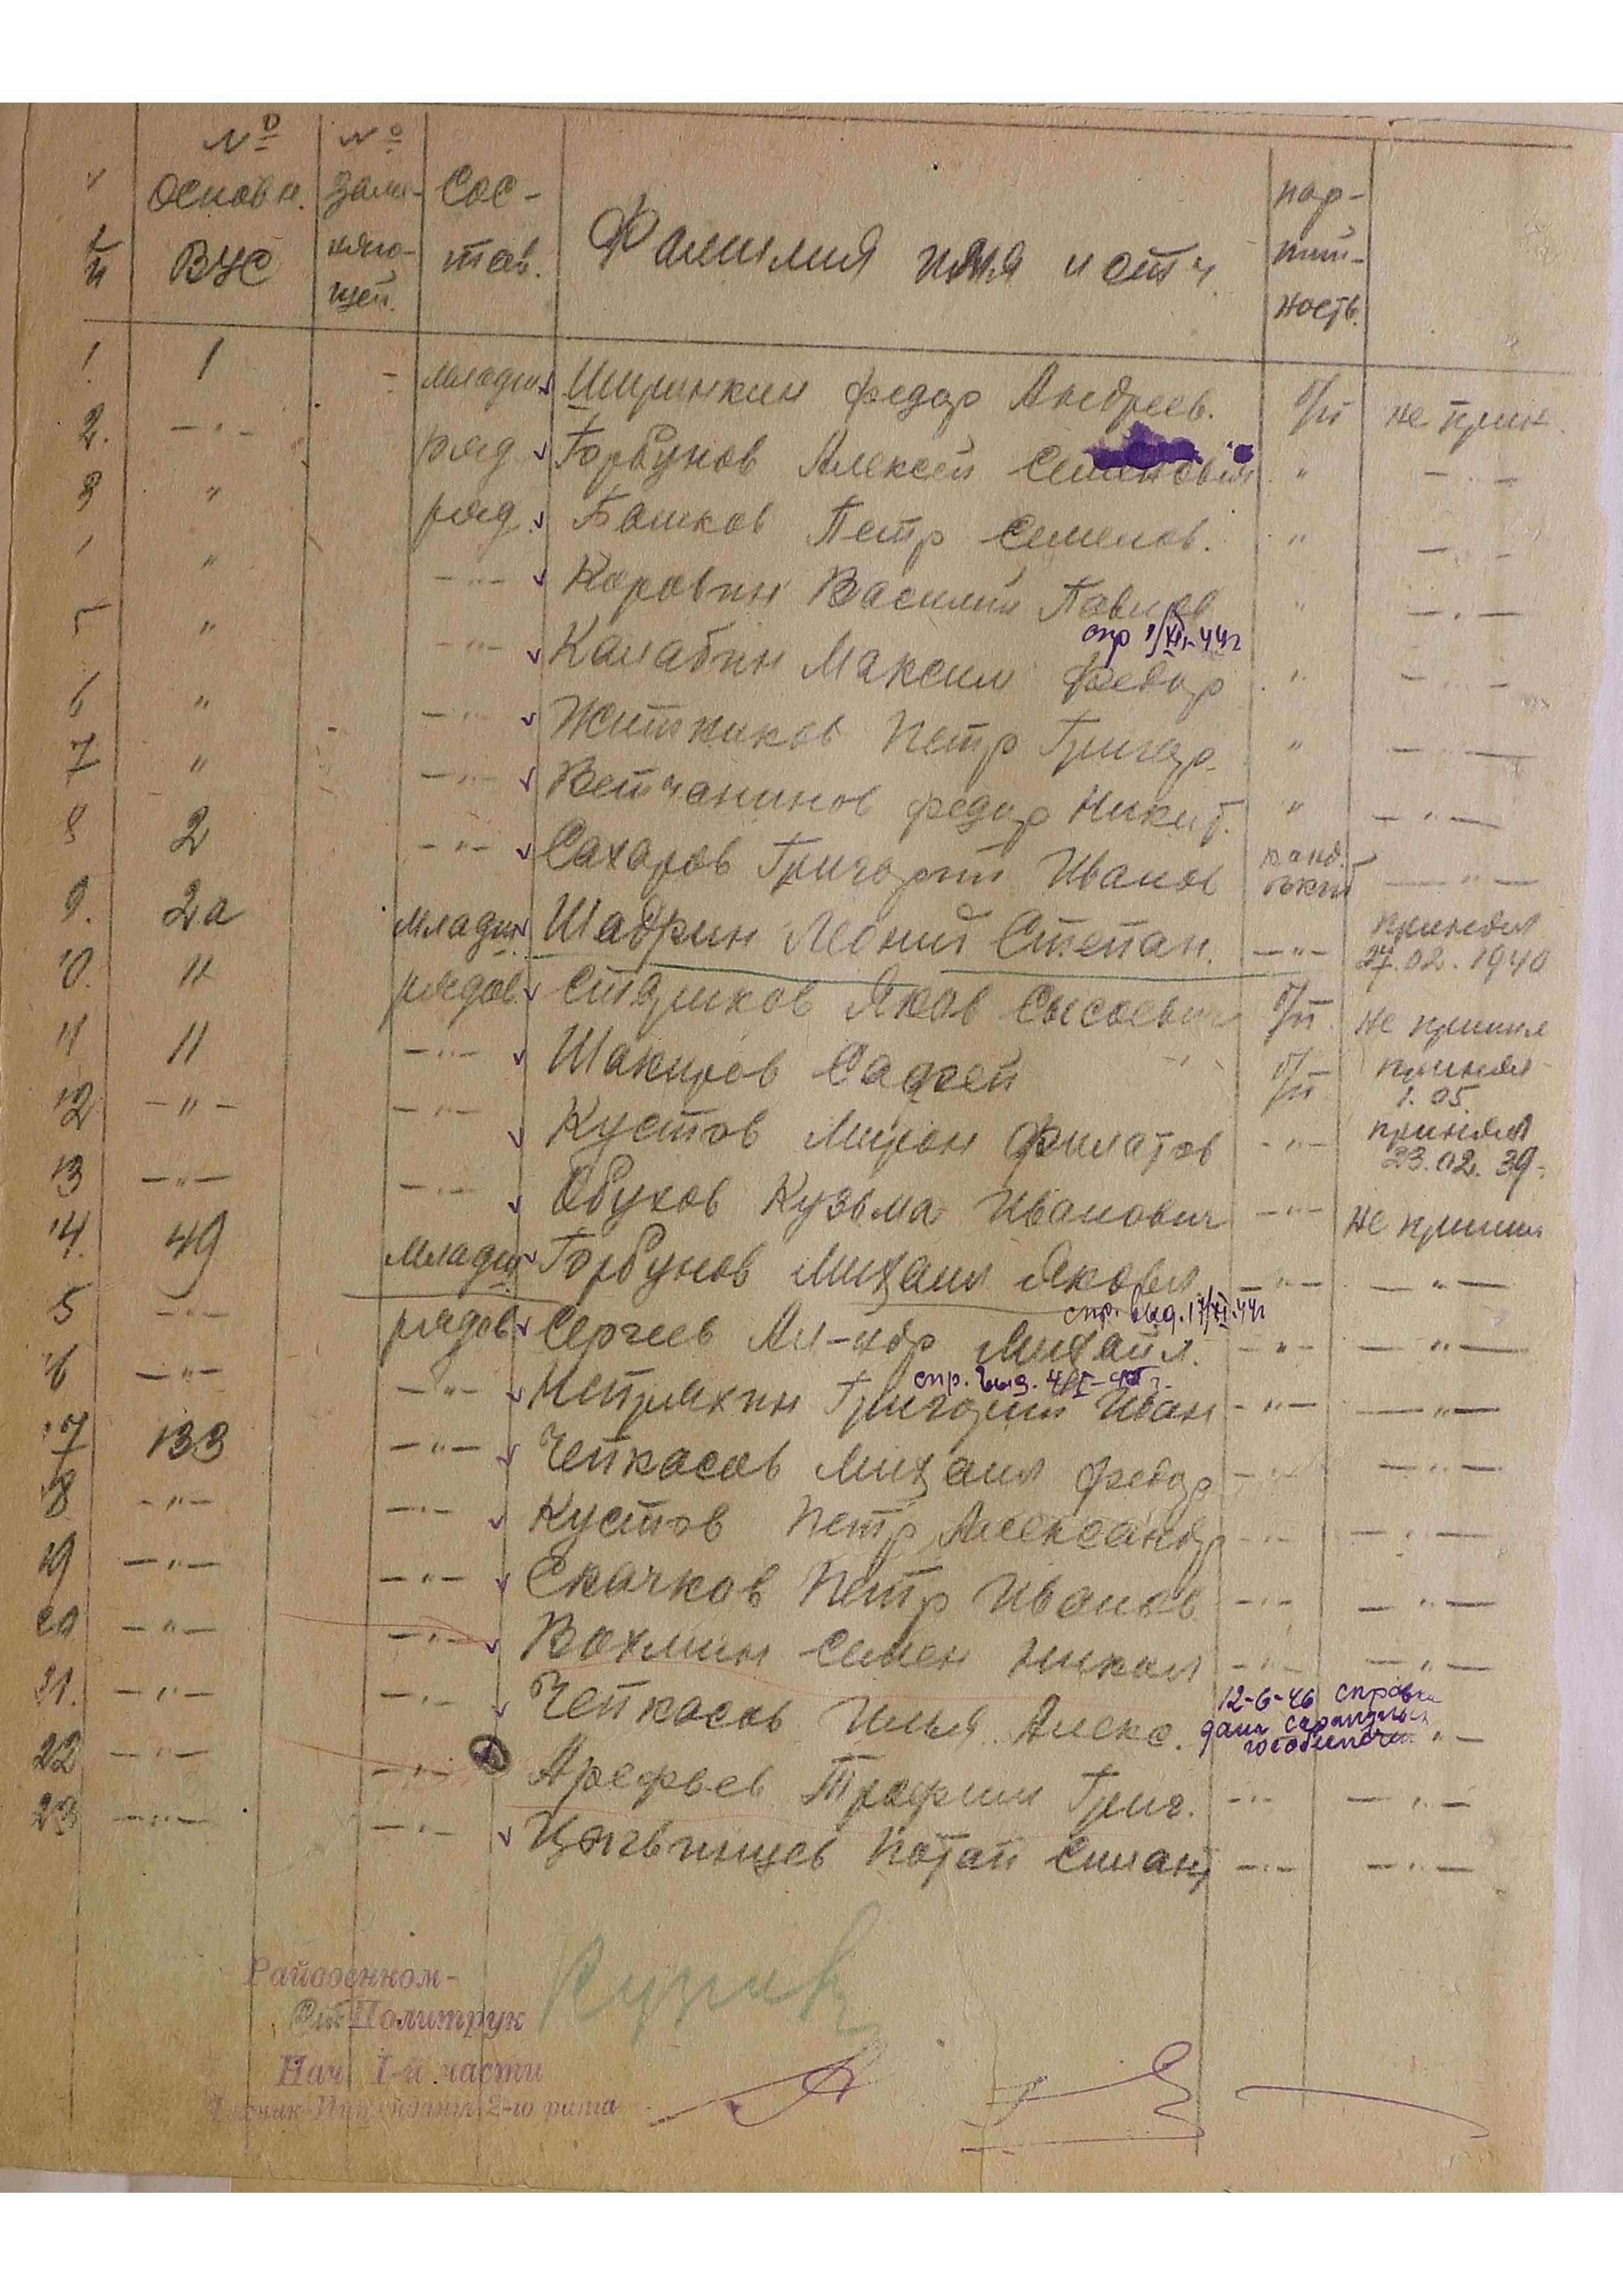 № п/п № основн. ВУС № заме-няю-щей. Сос-тав. Фамилия имя и отч. пар-тий-ность.
1. 1 - младш. Ширинкин Федор Андреев. б/п не прин.
2. -"- ряд. Горбунов Алексей Семенович " -"-
3 " ряд. Башков Петр Семенов. " -"-
" -"- Коровин Василий Павлов " -"-
спр 1/XI-44г
5 " -"- Калабин Максим Федор " -"-
6 " -"- Житников Петр Григор. " -"-
7 " -"- Ветчанинов Федор Никит. " -"-
8 2 -"- Сахаров Григорий Иванов канд. -"-
9. 2а младш. Шадрин Леонид Степан. -"- принял 27.02.1940
10. 11 рядов. Стариков Яков Сысоевич б/п не принял
11 11 -"- Шакиров Садрей б/п принял 1.05.
12 -"- -"- Кустов Мирон Филатов -"- принял 23.02.39.
13 -"- -"- Обухов Кузьма Иванович -"- не принял
14. 49 младш. Горбунов Михаил Яковл. -"- -"-
спр. выд. 17/XI-44г
5 -"- рядов. Сергеев Ал-ндр Михайл. -"- -"-
спр. выд.
16 -"- -"- Непряхин Григорий Иван -"- -"-
17 133 -"- Чепкасов Михаил Федор -"- -"-
18 -"- -"- Кустов Петр Александр -"- -"-
19 -"- -"- Скачков Петр Иванов -"- -"-
20 -"- -"- Вахмин Семен Никол -"- -"-
21. -"- -"- Чепкасов Илья Алекс. 12-6-46 справка дана "-
22 -"- -"- Арефьев Трофим Григ. -"- -"-
23 -"- -"- Потап Силант -"- -"-
Райвоенком-
Политрук
Нач. I-й части
Техник-Интендант 2-го ранга